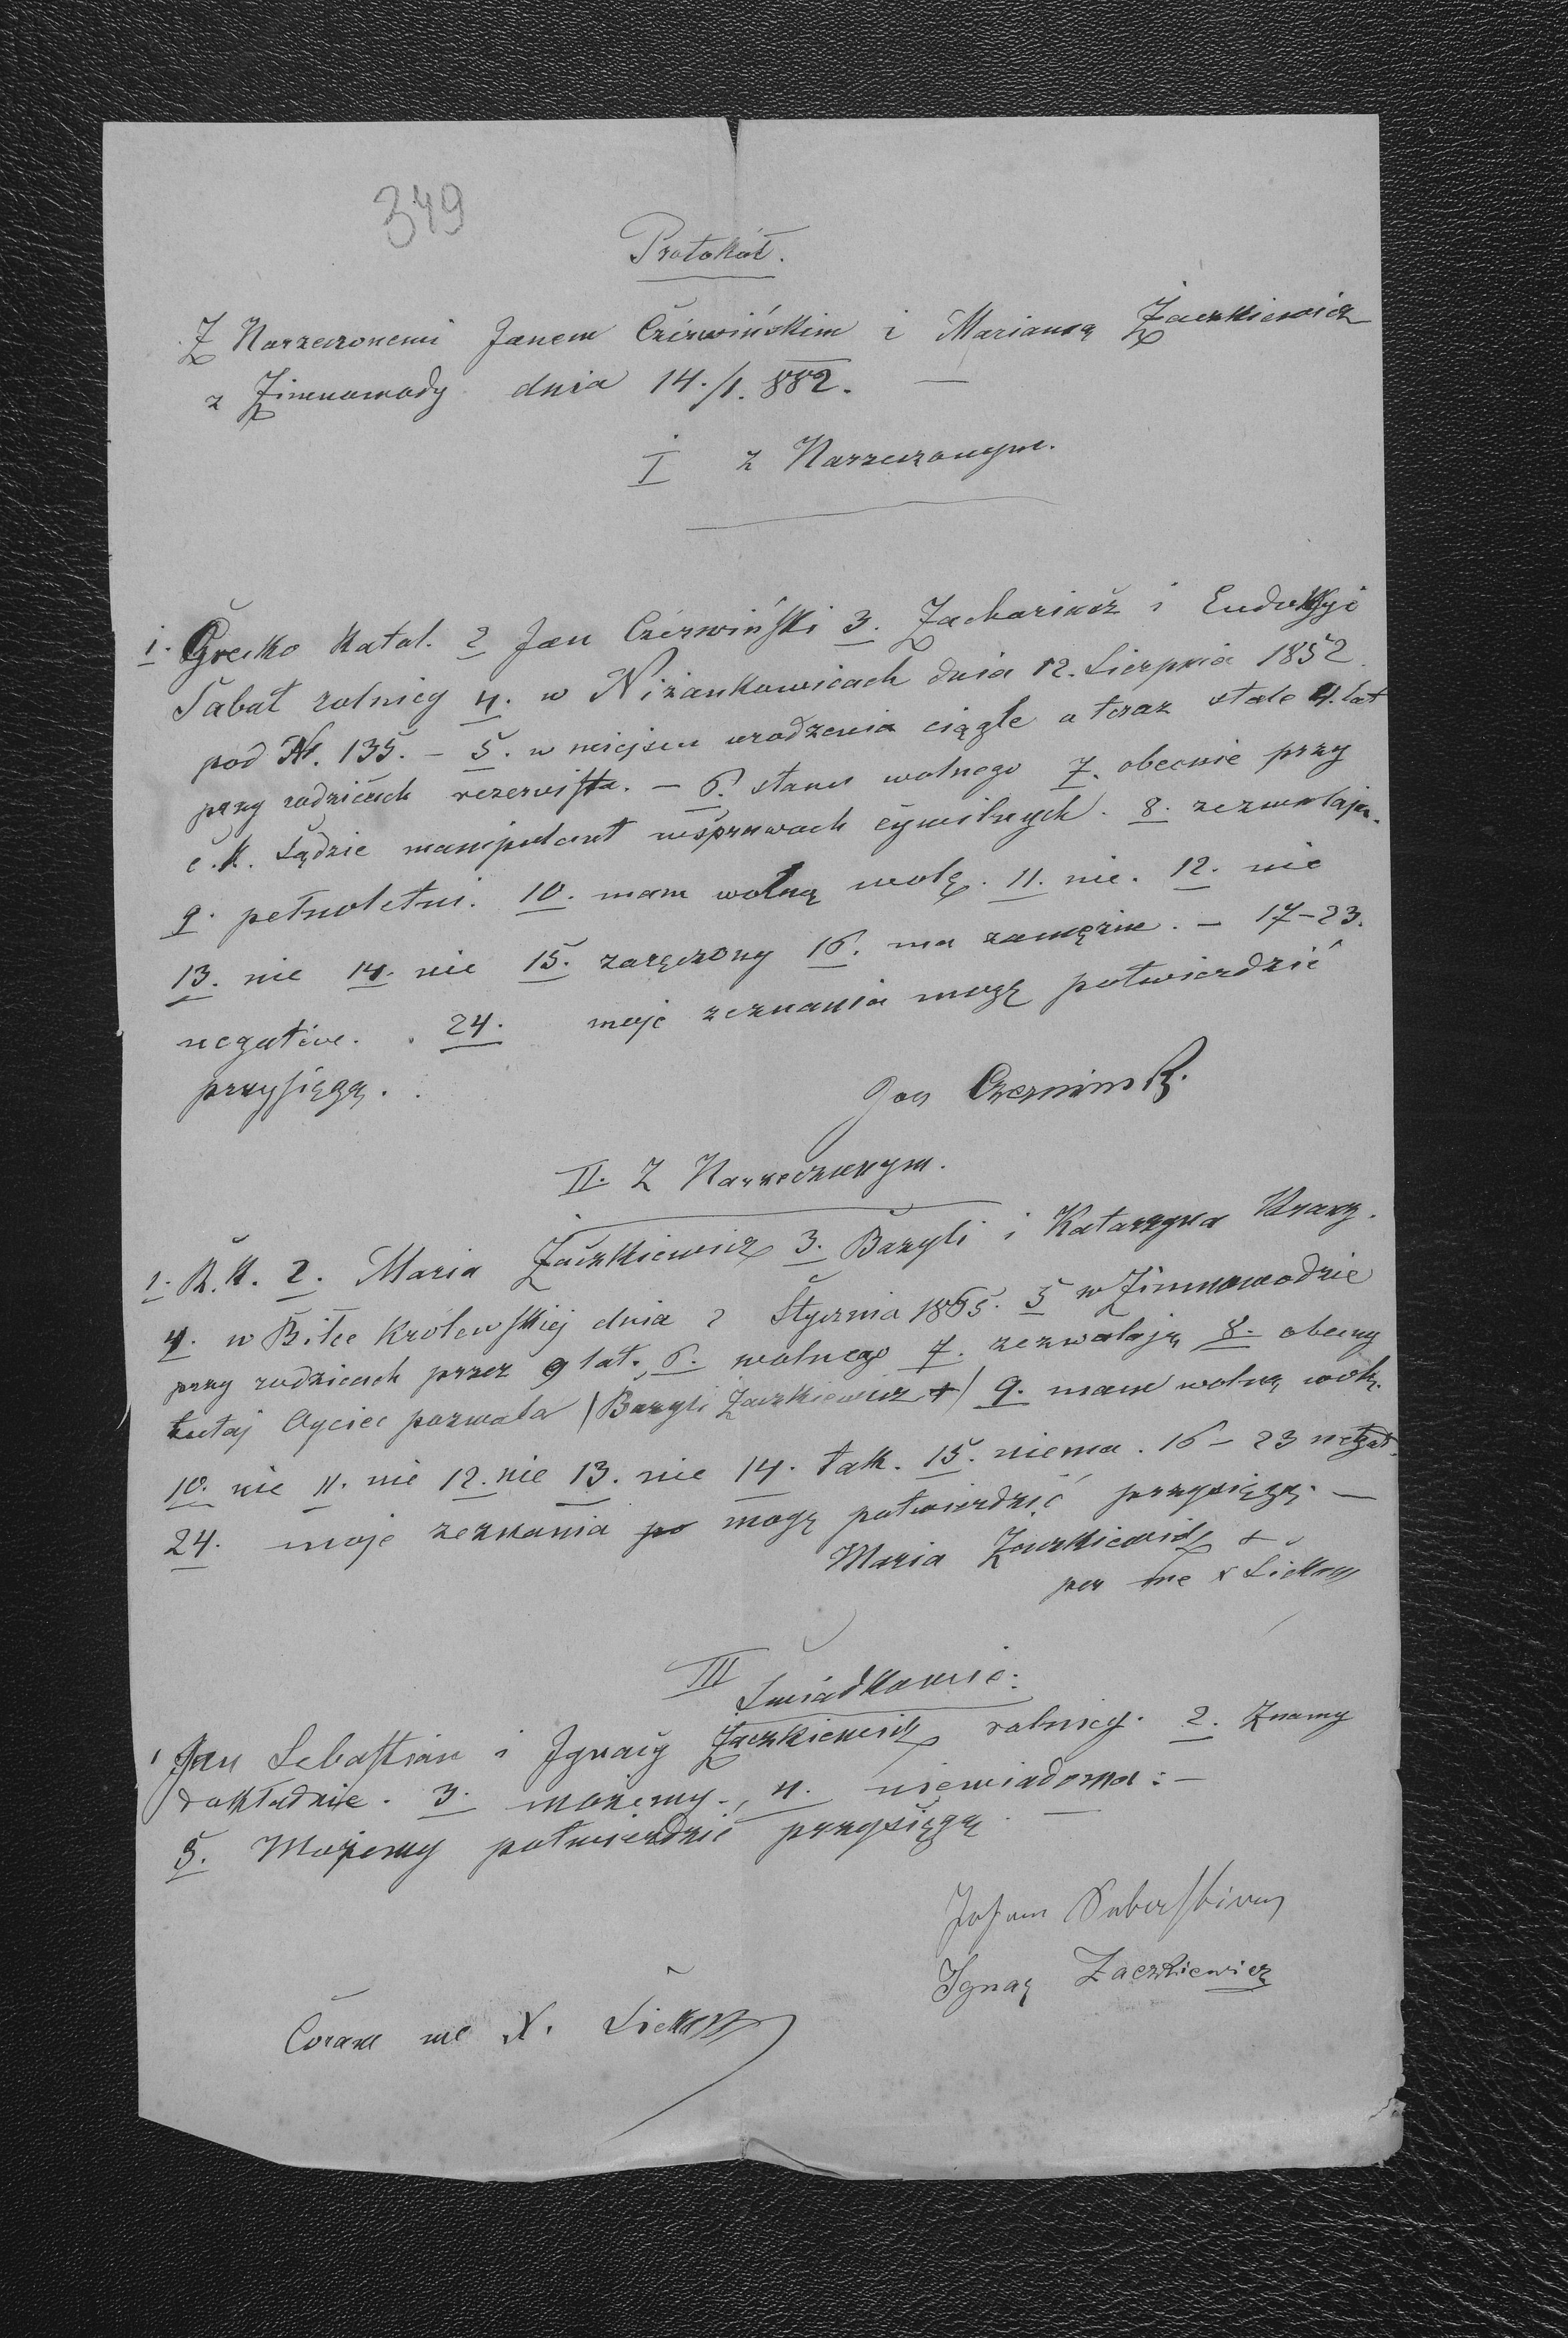 349
Protokół.
Z Narzeczonemi Janem Czérwińskim i Marianną Żaczkiewicz
z Zimnowody dnia 14./1. 882. —
I z Narzeczonym.
1. Grecko Katol. 2 Jan Czérwiński 3. Zachariasz i Eudokyi
Sabat rolnicy 4. w Niżankowicach dnia 12. Sierpnia 1852
pod Nr. 135. — 5. w miejscu urodzenia ciągle a teraz stale 4. lat
przy rodzicach rezerwista. — 6. stanu wolnego 7. obecnie przy
c. k. Sądzie manipulant wsprawach cywilnych. 8. zezwalają.
9. pełnoletni. 10. mam wolną wolę. 11. nie. 12. nie
13. nie 14. nie 15. zaręczony 16. ma zamęzcie. — 17—23.
negative. 24. moje zeznania mogę potwierdzić
przysięgą.
Jan Czerwinski
II. Z Narzeczonym.
1. R. K. 2. Maria Żaczkiewicz 3. Bazyli i Katarzyna
4. w Biłce Krolewskiej dnia 2 Stycznia 1865. 5 w Zimnowodzie
przy rodzicach przez 9 lat., 6. wolnego 7. zezwalają 8. obecny
tutaj Oyciec pozwala (Bazyli Żaczkiewicz +) 9. mam wolną wolę.
10. nie 11. nie 12. nie 13. nie 14. tak. 15. niema. 16 — 23 negat.
24. moje zeznania po mogę potwierdzić przysięgą. —
Maria Żaczkiewicz +
per me X
III Świadkowie:
1 Jan Sebastian i Ignacy Żaczkiewicz rolnicy. 2. Znamy
dokładnie. 3. możemy., 4. niewiadoma: —
5. Możemy potwierdzić przysięgą. —
Johann
Ignaz Zaczkiewicz
Coram me X.